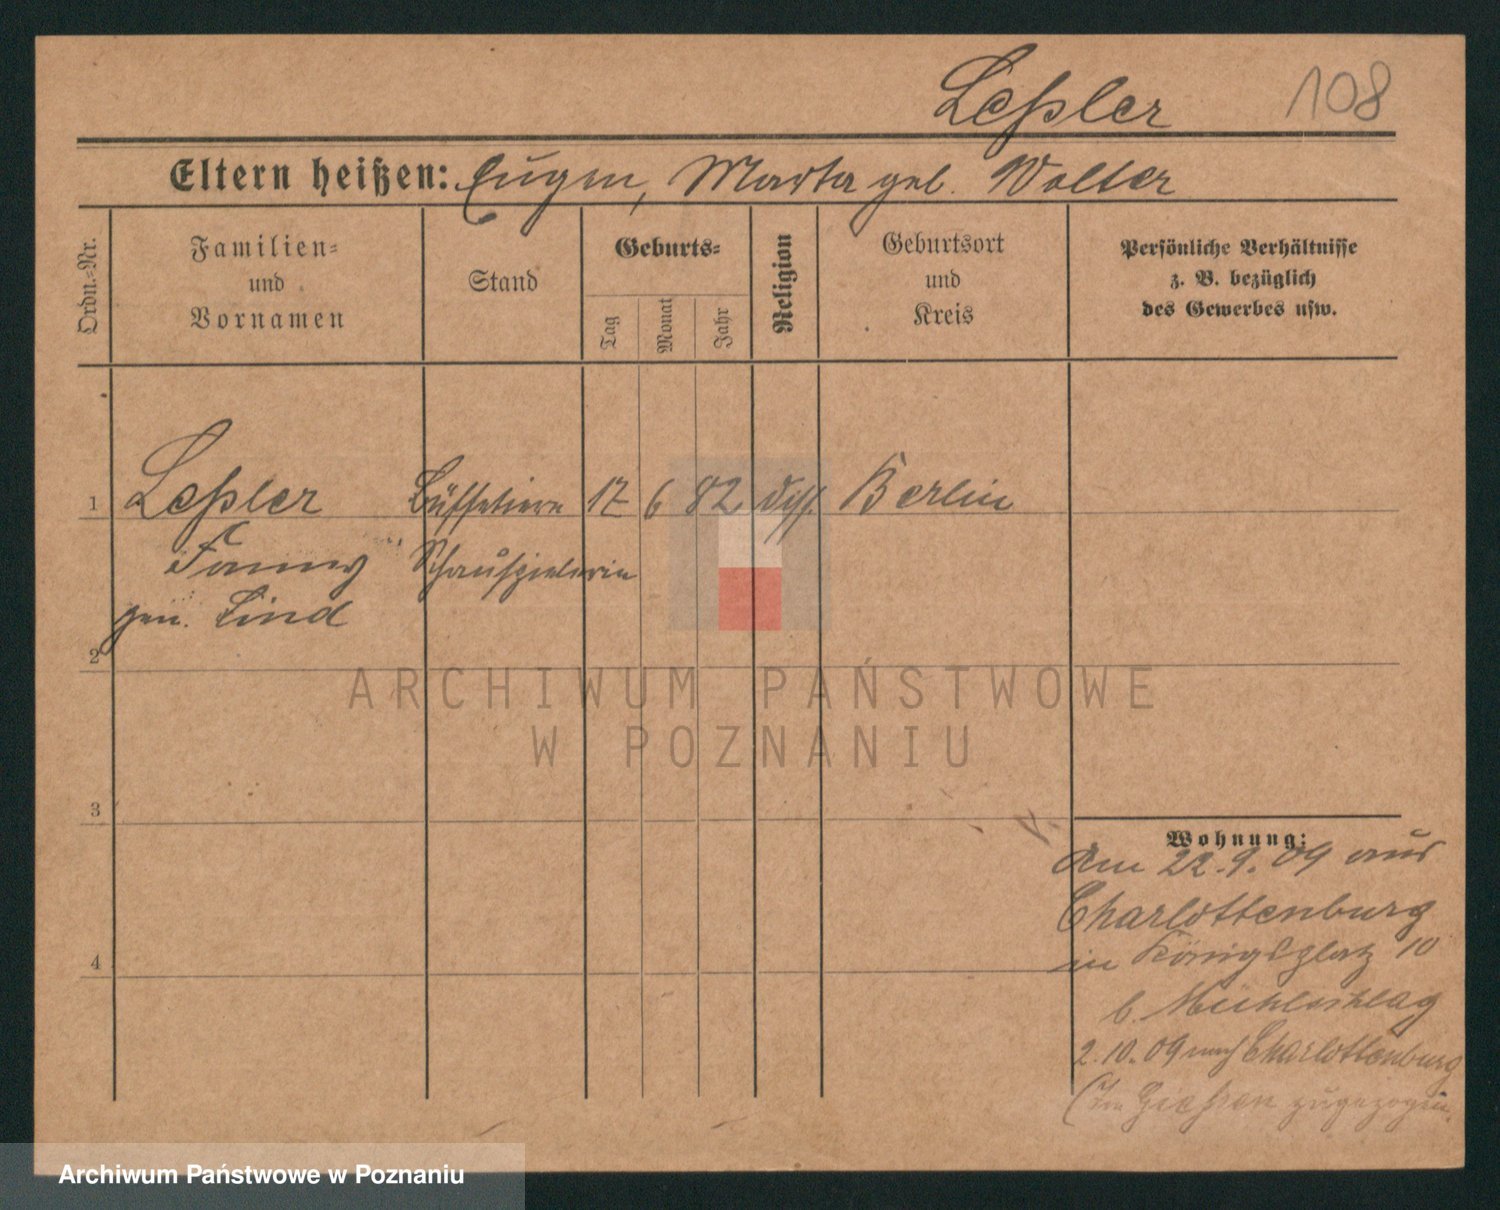 Leßler 108
Eltern heißen: Eugen, Marta geb. Wolter
Ordn.-Nr.
Familien-
und
Vornamen
Stand
Geburts-
Tag
Monat
Jahr
Religion
Geburtsort
und
Kreis
Persönliche Verhältnisse
z. B. bezüglich
des Gewerbes usw.
1 Leßler Büffetiere 17 6 82 diss. Berlin
Fanny Schauspielerin
gen. Lind
2
3
4
Wohnung:
Am 22.9.09 aus
Charlottenburg
in Königsplatz 10
b.
2.10.09 nach Charlottenburg
zugezogen.
ARCHIWUM PAŃSTWOWE
W POZNANIU
Archiwum Państwowe w Poznaniu